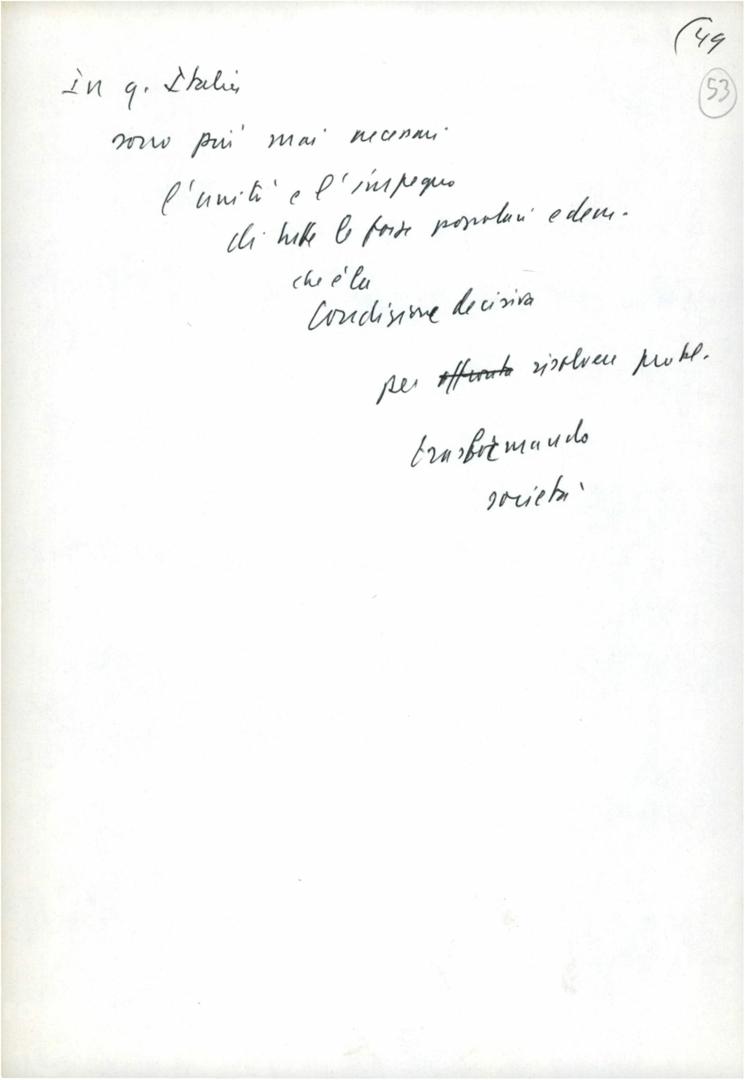 (49
53
In q. Italia
sono più mai necessari
l'unità e l'impegno
di tutte le forze popolari e dem.
che è la
condizione decisiva
per affronta risolvere probl.
trasformando
società